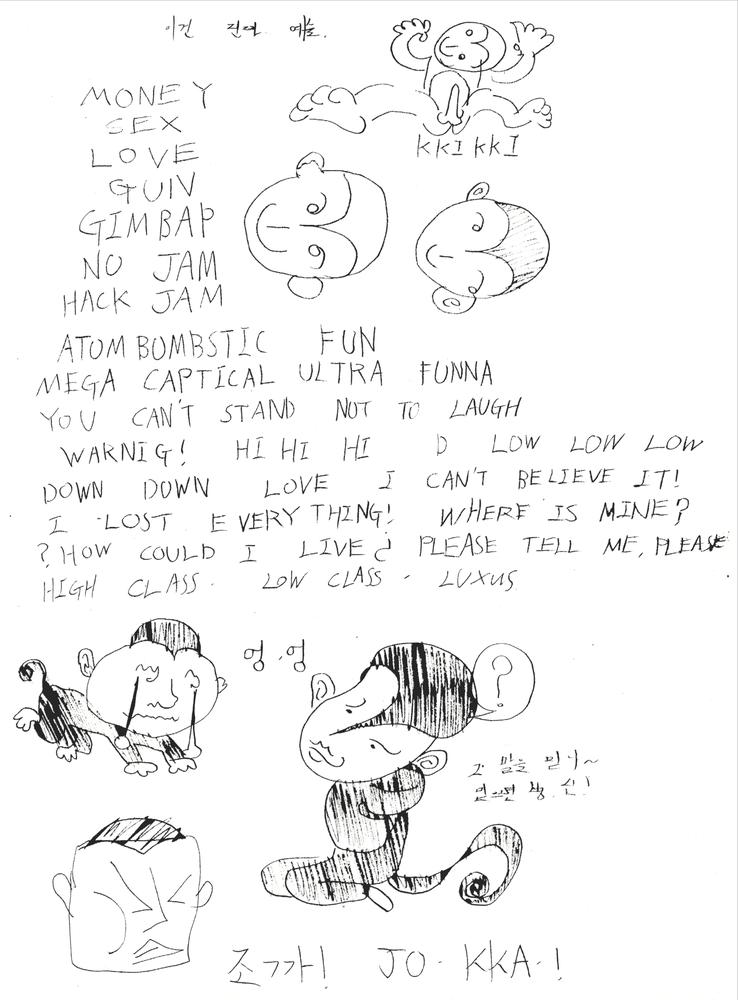 이건 진아 예술.
KKI KKI
MONEY
SEX
LOVE
GUIV
GIMBAP
NO JAM
HACK JAM
ATOM BOMBSTIC FUN
MEGA CAPTICAL ULTRA FUNNA
YOU CAN'T STAND NOT TO LAUGH
WARNIG! HI HI HI D LOW LOW LOW
DOWN DOWN LOVE I CAN'T BELIEVE IT!
I LOST EVERYTHING! WHERE IS MINE?
? HOW COULD I LIVE ¿ PLEASE TELL ME, PLEASE
HIGH CLASS. LOW CLASS. LUXUS
엉.엉
?
그 말을 믿니~
믿으면 병.신!
조까! JO.KKA.!